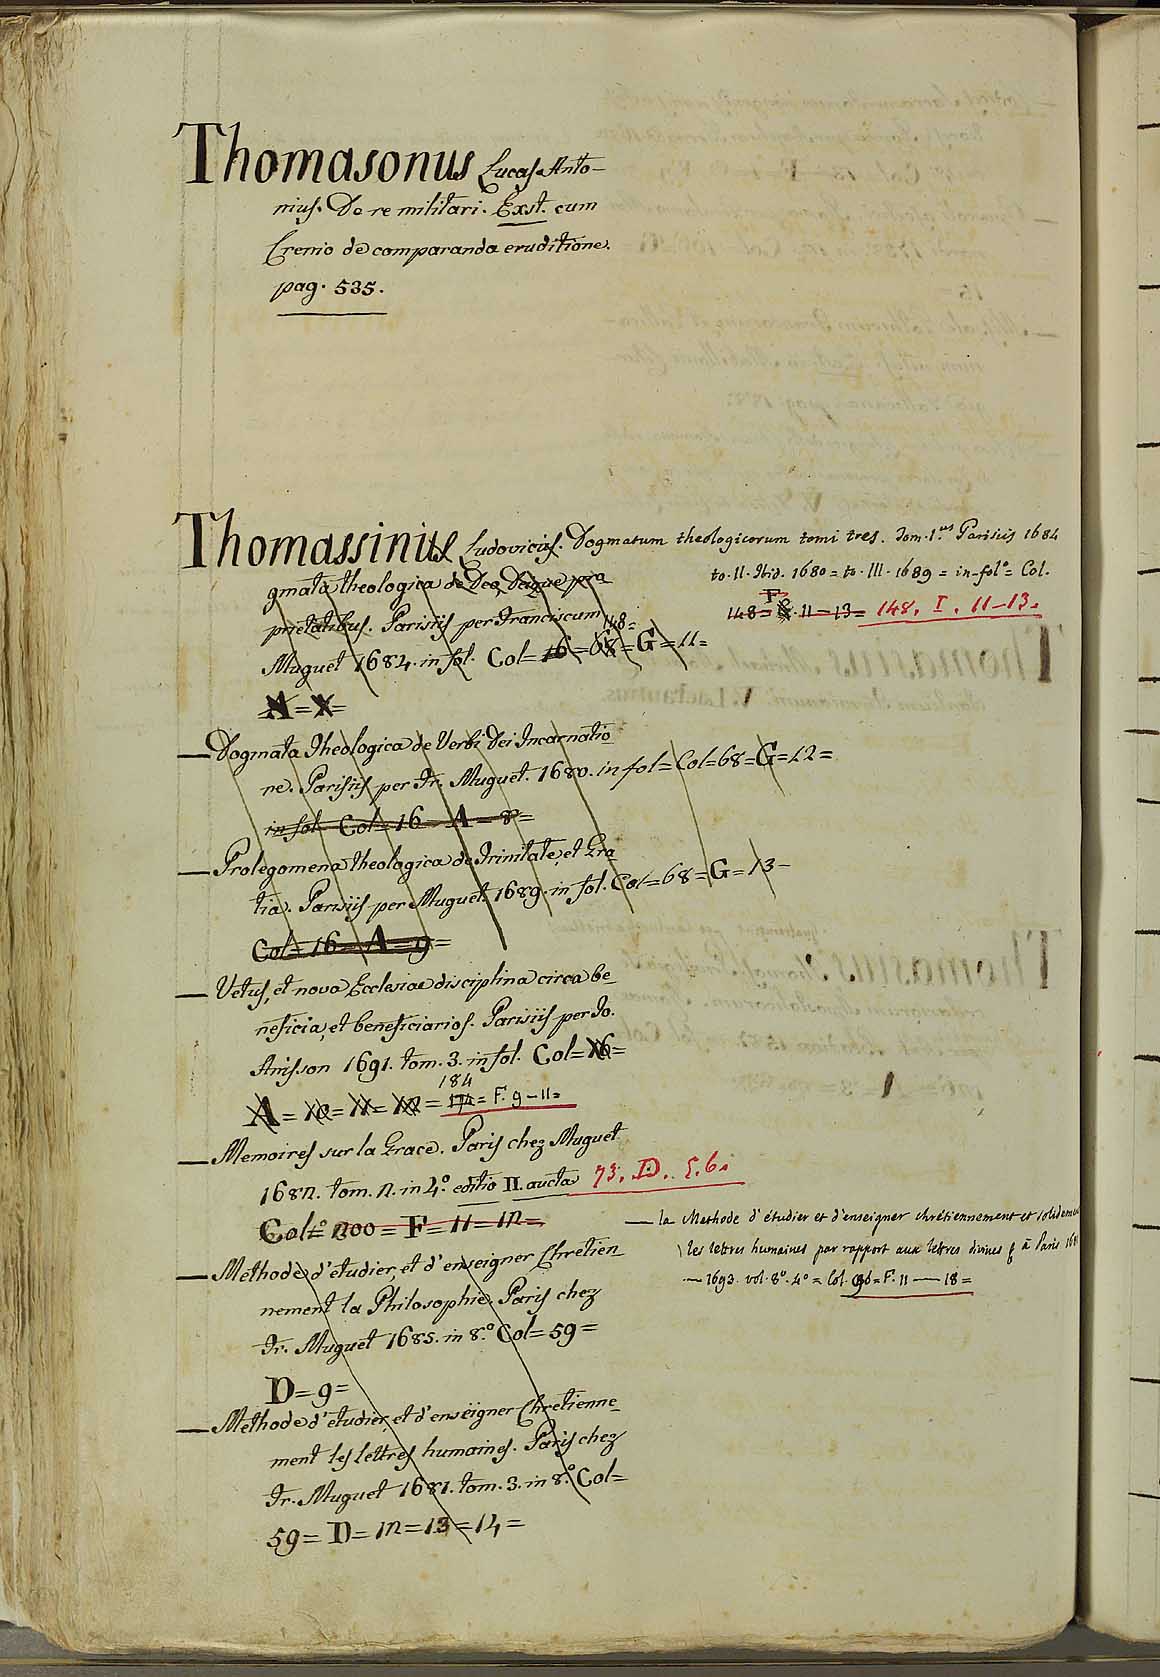 Thomasonus Lucas Anto-
nius. De re militari. Exst. cum
Crenio de comparanda eruditione.
pag. 535.
Thomassinius Ludovicus. Dogmatum theologicorum tomi tres. Tom. 1.us Parisiis 1684
to. II. Ibid. 1680 = to. III. 1689 = in-fol.o = Col.
F
148 = 11-13 = 148. I. 11-13.
gmata theologica de Deo, Deique pro
prietatibus. Parisiis per Franciscum
148=
Muguet 1684. in fol. Col = 16 = 68 = G = 11=
A = X=
— Dogmata Theologica de Verbi Dei Incarnatio
ne. Parisiis per Fr. Muguet. 1680. in fol = Col = 68 = G = 12 =
in fol. Col = 16 = A = 8 =
— Prolegomena theologica de Trinitate, et Gra
tia. Parisiis per Muguet. 1689. in fol. Col = 68 = G = 13 -
Col = 16 = A = 9 =
— Vetus, et nova Ecclesiae disciplina circa be-
neficia, et beneficiarios. Parisiis per Jo.
Anisson 1691. tom. 3. in fol. Col = 16 =
184
A = 10 = 11 = 12 = 174 = F. 9-11=
— Memoires sur la Grace. Paris chez Muguet
1682. tom. 2. in 4.o editio II. aucta 73. D. 5.6.
Col = 200 = F = 11 = 12 =
— Methode d'etudier, et d'enseigner Chretien
nement la Philosophie. Paris chez
Fr. Muguet 1685. in 8.o Col = 59 =
D = 9 =
— Methode d'etudier, et d'enseigner Chretienne-
ment les lettres humaines. Paris chez
Fr. Muguet 1681. tom. 3. in 8.o Col =
59 = D = 12 = 13 = 14 =
— la Methode d'étudier et d'enseigner chrétiennement et solidement
les lettres humaines par rapport aux lettres divines à Paris
— 1693. vol. 8.o 4.o = Col. = F. 11 — 18 =